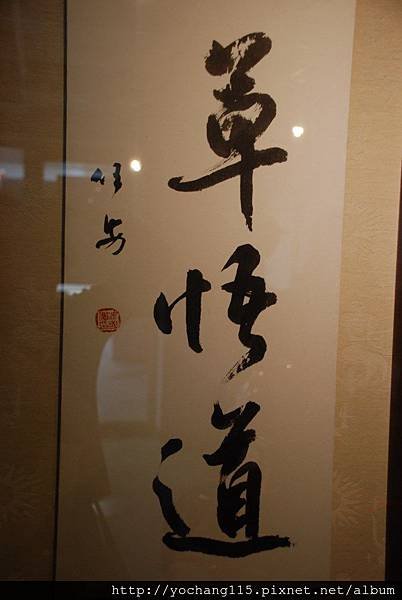 草悟道
http://yochang115.pixnet.net/album